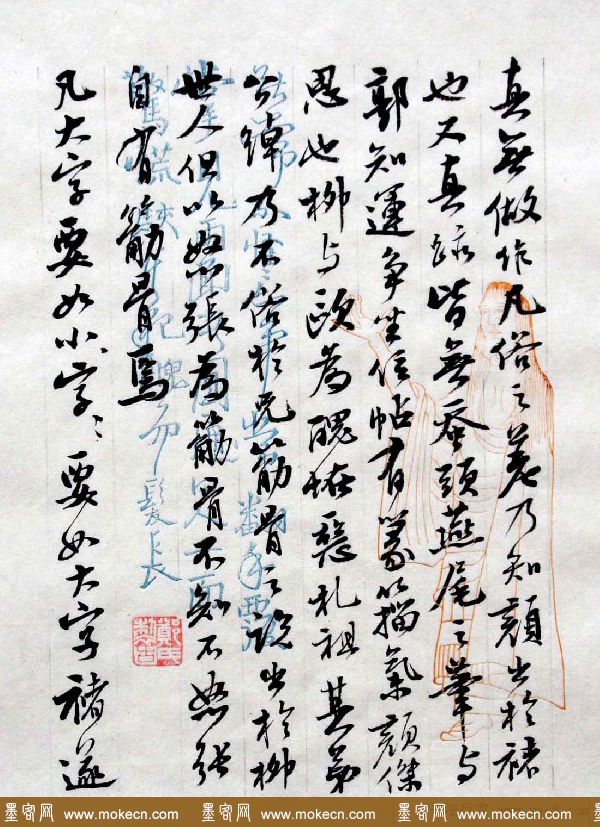 真無做作凡俗之差乃知顏出於褚
也又真跡皆無蚕頭燕尾之筆与
郭知運争坐位帖有篆籀氣顏傑
思也柳与歐為醜怪惡札祖其弟
公綽乃不俗於兄筋骨之說出於柳
世人但以怒張為筋骨不知不怒張
自有筋骨焉
凡大字要如小字、要如大字褚遂
髮長
墨客网 www.mokecn.com 墨客网 www.mokecn.com 墨客网 www.mokecn.com 墨客网 www.mokecn.com